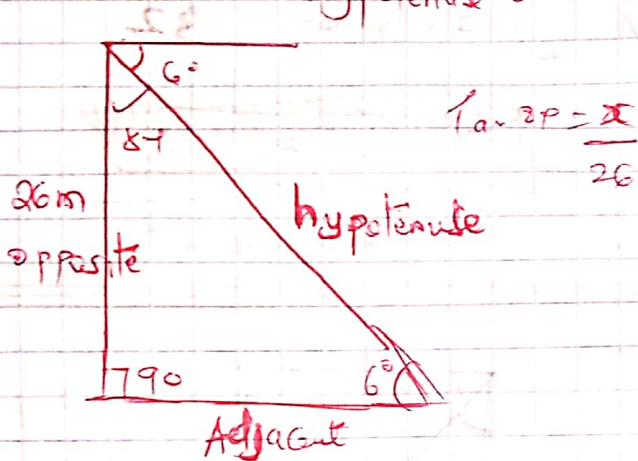 6°
84
Tan = x
26
26m
opposite
hypotenuse
90
6°
Adjacent